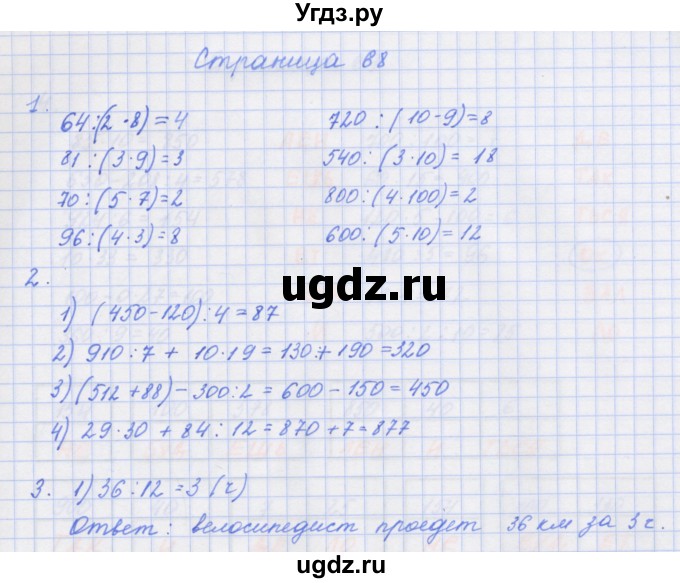 Угдз.ру
Страница 88
1.
64:(2·8)=4
720:(10·9)=8
81:(3·9)=3
540:(3·10)=18
70:(5·7)=2
800:(4·100)=2
96:(4·3)=8
600:(5·10)=12
2.
1) (450-120):4=87
2) 910:7+10·19=130+190=320
3) (512+88)-300:2=600-150=450
4) 29·30+84:12=870+7=877
ugdz.ru
3. 1) 36:12=3 (ч)
Ответ: велосипедист проедет 36 км за 3 ч.
Угдз.ру